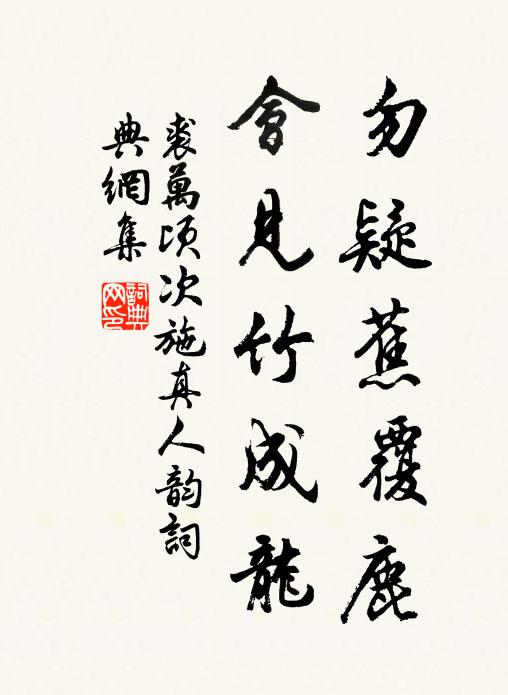 勿疑蕉覆鹿
會見竹成龍
裘萬頃次施真人韵詞
典網集
詞典網印